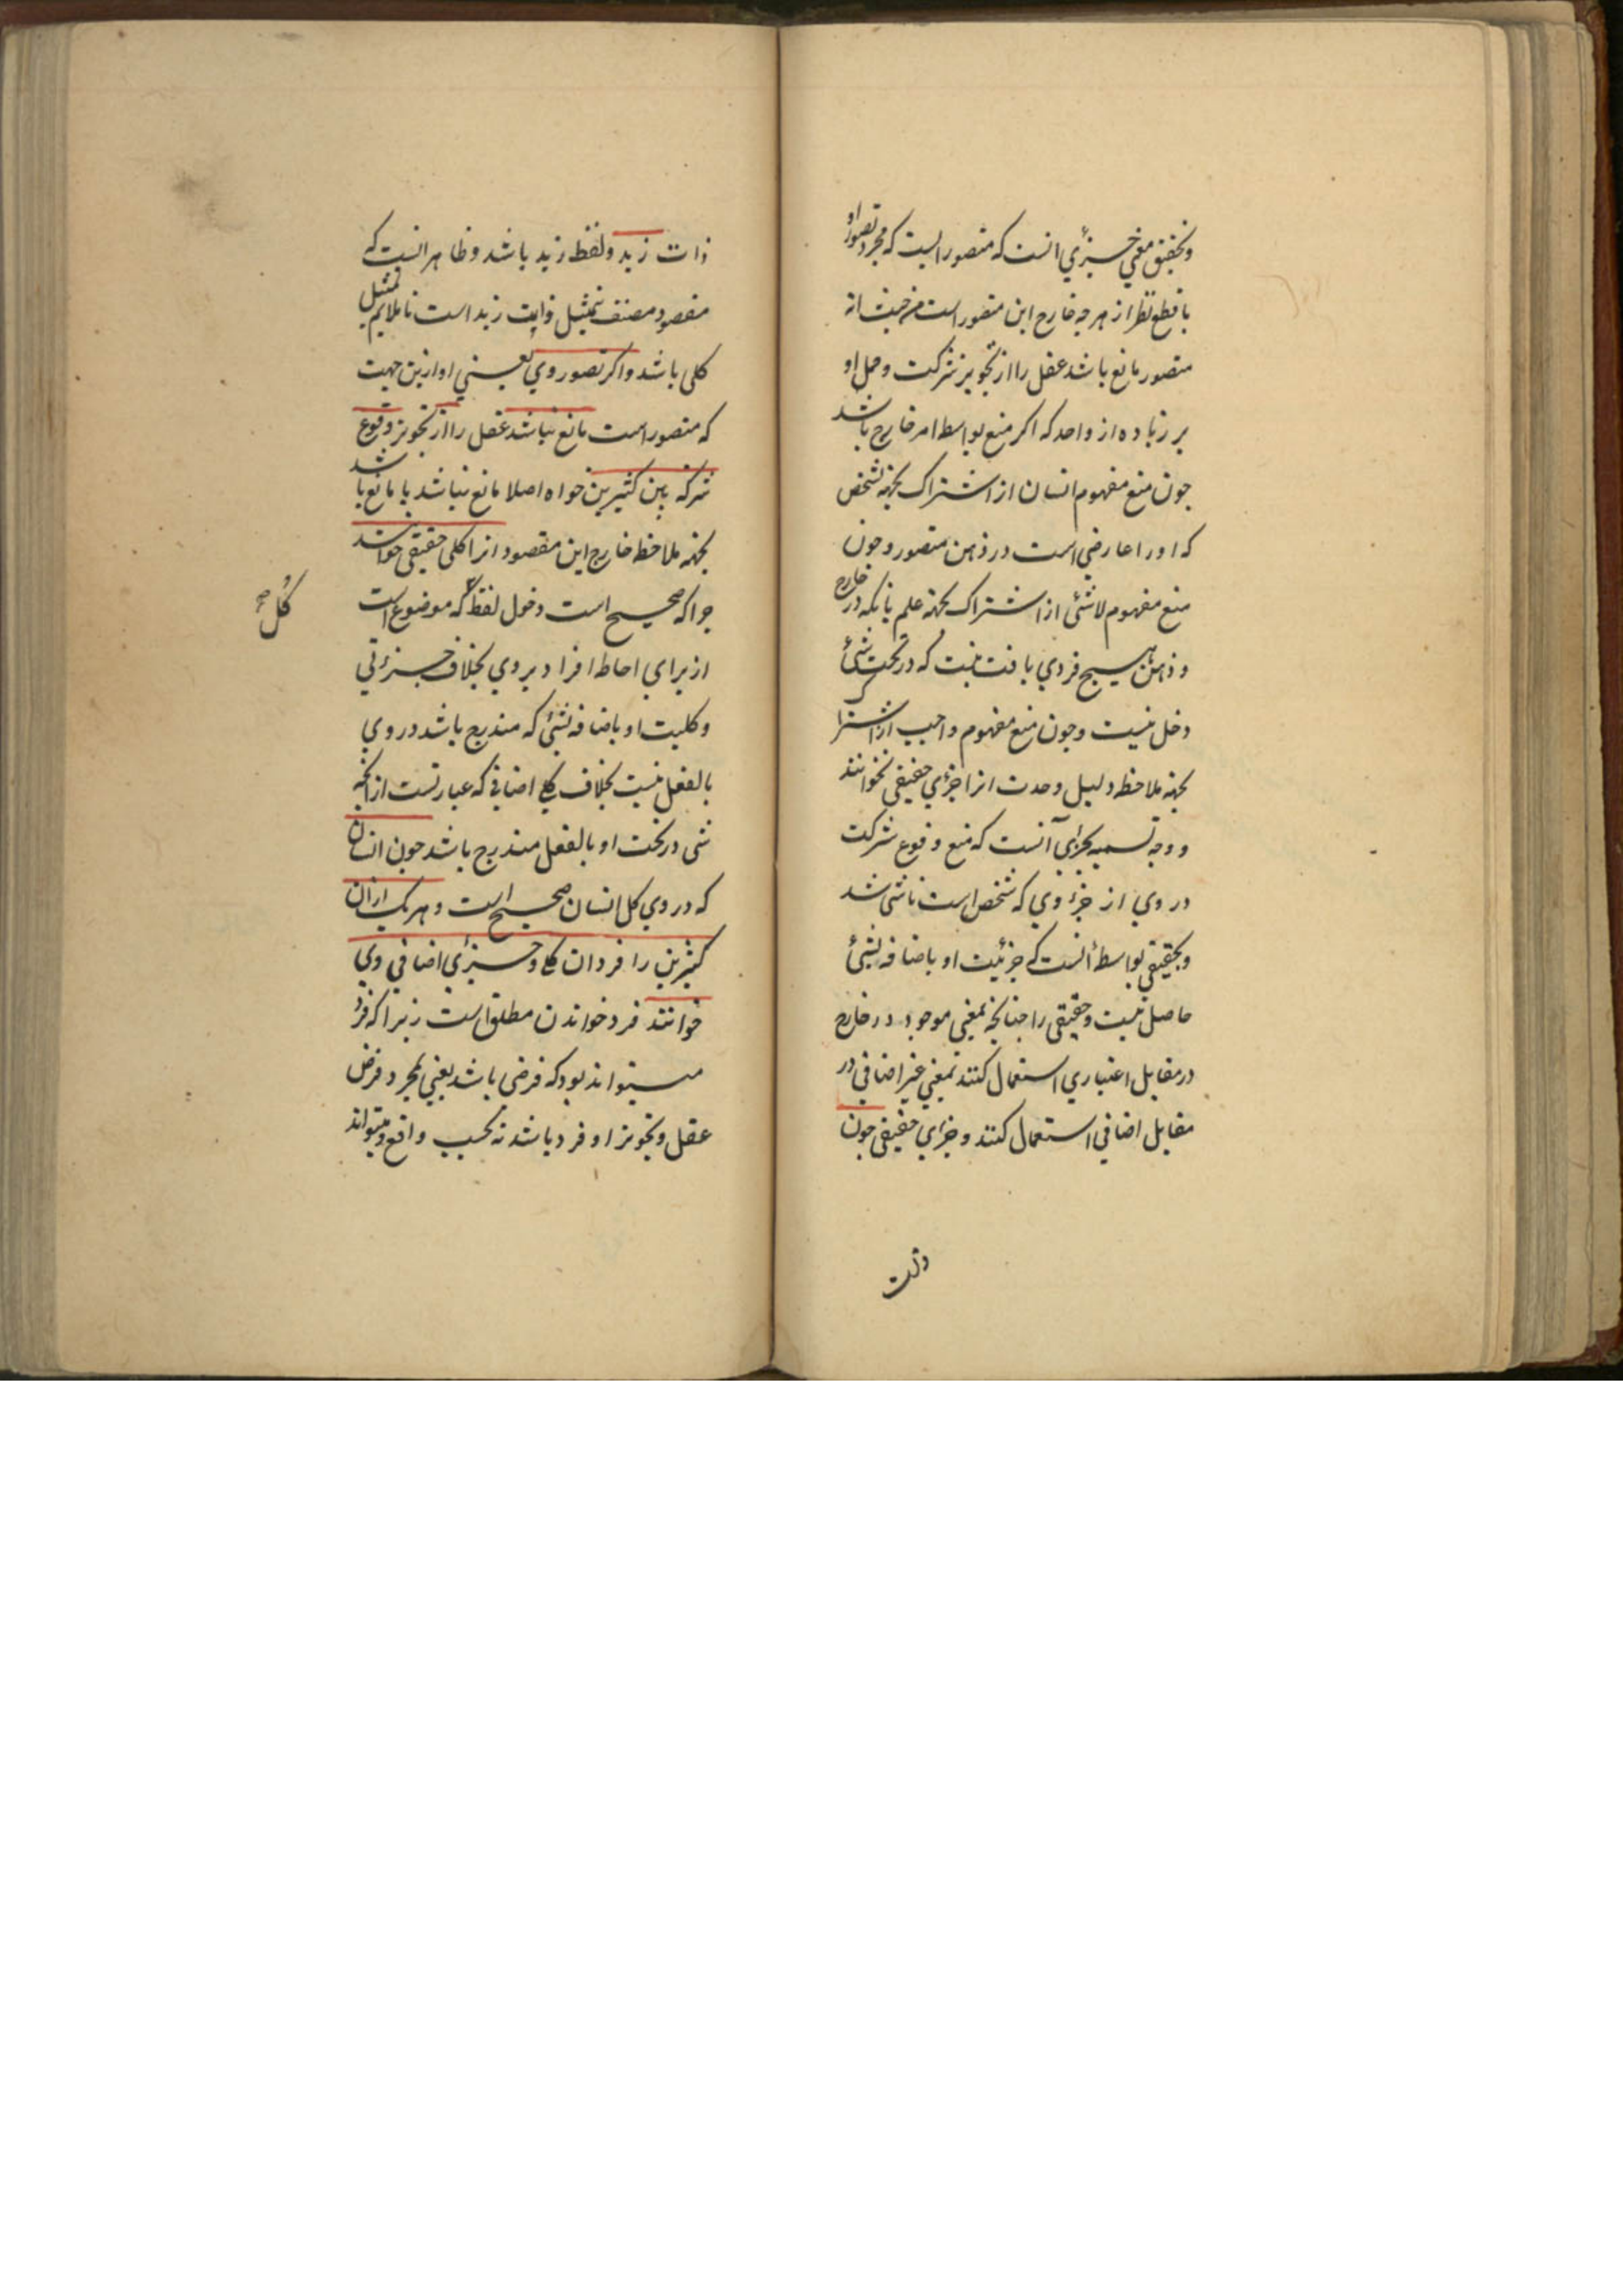 وتحقیق معنی جزئی انست که متصور ایست که مجرد تصور او
با قطع نظر از هر چه خارج این متصور است من حیث انه
متصور مانع باشد عقل را از تجویز شرکت وحمل او
بر زیاده از واحد که اکر منع بواسطه امر خارج باشد
چون منع مفهوم انسان از اشتراک بجهة تشخص
که او را عارضی است در ذهن متصور وچون
منع مفهوم لاشئ از اشتراک بجهة علم بانکه در خارج
و ذهن هیچ فردی یافت نیست که در تحت شئ
دخل نیست وچون منع مفهوم واجب از اشتراک
بجهة ملاحظه دلیل وحدت انرا جزءی حقیقی نخوانند
و وجه تسمیه بجزءی آنست که منع وقوع شرکت
در وی از جزء وی که شخص است ناشی شد
وبحقیقی بواسطهٔ انست که جزئیت او باضافه بشئ
حاصل نیست وحقیقی را چنانچه بمعنی موجود در خارج
در مقابل اعتباری استعمال کنند بمعنی غیر اضافی در
مقابل اضافی استعمال کنند وجزءی حقیقی چون
ذات
ذات زید ولفظ زید باشد وظاهر انست که
مقصود مصنف تمثیل ذات زید است تا ملایم تمثیل
کلی باشد واکر تصور وی یعنی او ازین جهت
که متصور است مانع نباشد عقل را از تجویز وقوع
شرکة بین کثیرین خواه اصلا مانع نباشد یا مانع باشد
بجهة ملاحظه خارج این مقصود انرا کلی حقیقی خوانند
چرا که صحیح است دخول لفظ که موضوع است
کل صح
از برای احاطه افراد بر وی بخلاف جزئی
وکلیت او باضافه بشئ که مندرج باشد در وی
بالفعل نیست بخلاف کلی اضافی که عبارتست از انچه
شی در تحت او بالفعل مندرج باشد چون انسان
که در وی کل انسان صحیح است وهر یک از ان
کثیرین را فرد ان کلی وجزئی اضافی وی
خوانند فرد خواندن مطلق است زیرا که فرد
میتواند بود که فرضی باشد یعنی بمجرد فرض
عقل وتجویز او فرد باشد نه بحسب واقع ومیتواند